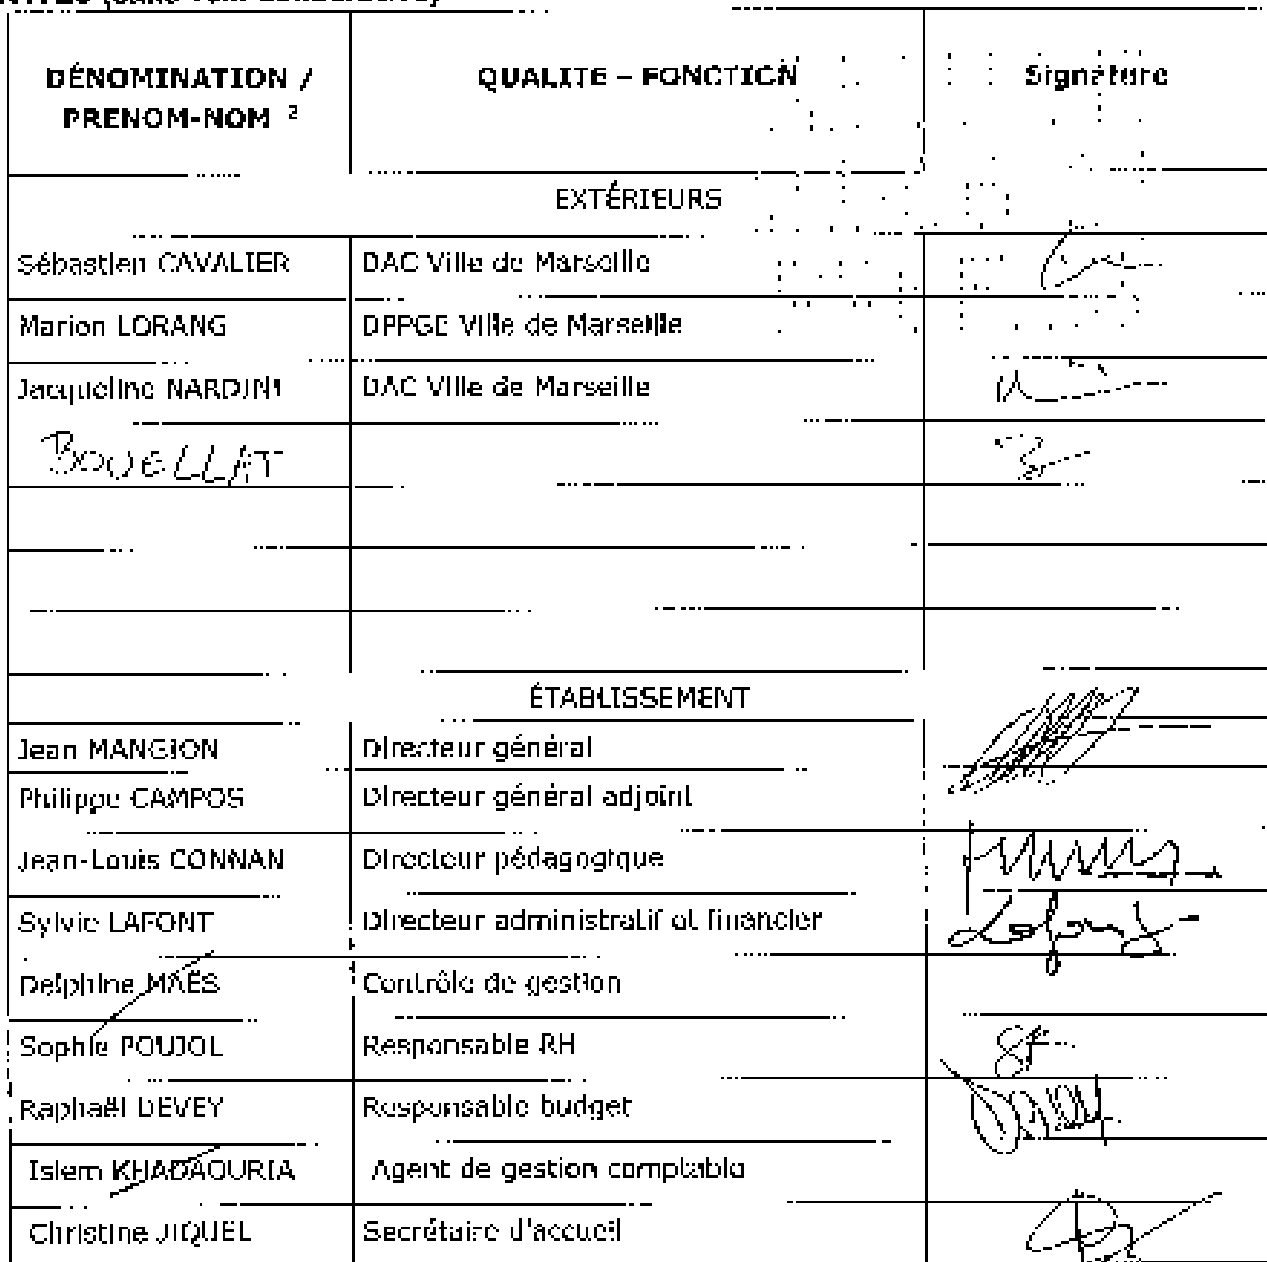 DÉNOMINATION / QUALITE – FONCTION Signature
PRENOM-NOM ²
EXTÉRIEURS
Sébastien CAVALIER DAC Ville de Marseille
Marion LORANG DPPGE Ville de Marseille
Jacqueline NARDINI DAC Ville de Marseille
BOUELLAT
ÉTABLISSEMENT
Jean MANGION Directeur général
Philippe CAMPOS Directeur général adjoint
Jean-Louis CONNAN Directeur pédagogique
Sylvie LAFONT Directeur administratif et financier Lafont
Delphine MAËS Contrôle de gestion
Sophie POUJOL Responsable RH
Raphaël DEVEY Responsable budget
Islem KHADAOURIA Agent de gestion comptable
Christine JIQUEL Secrétaire d'accueil